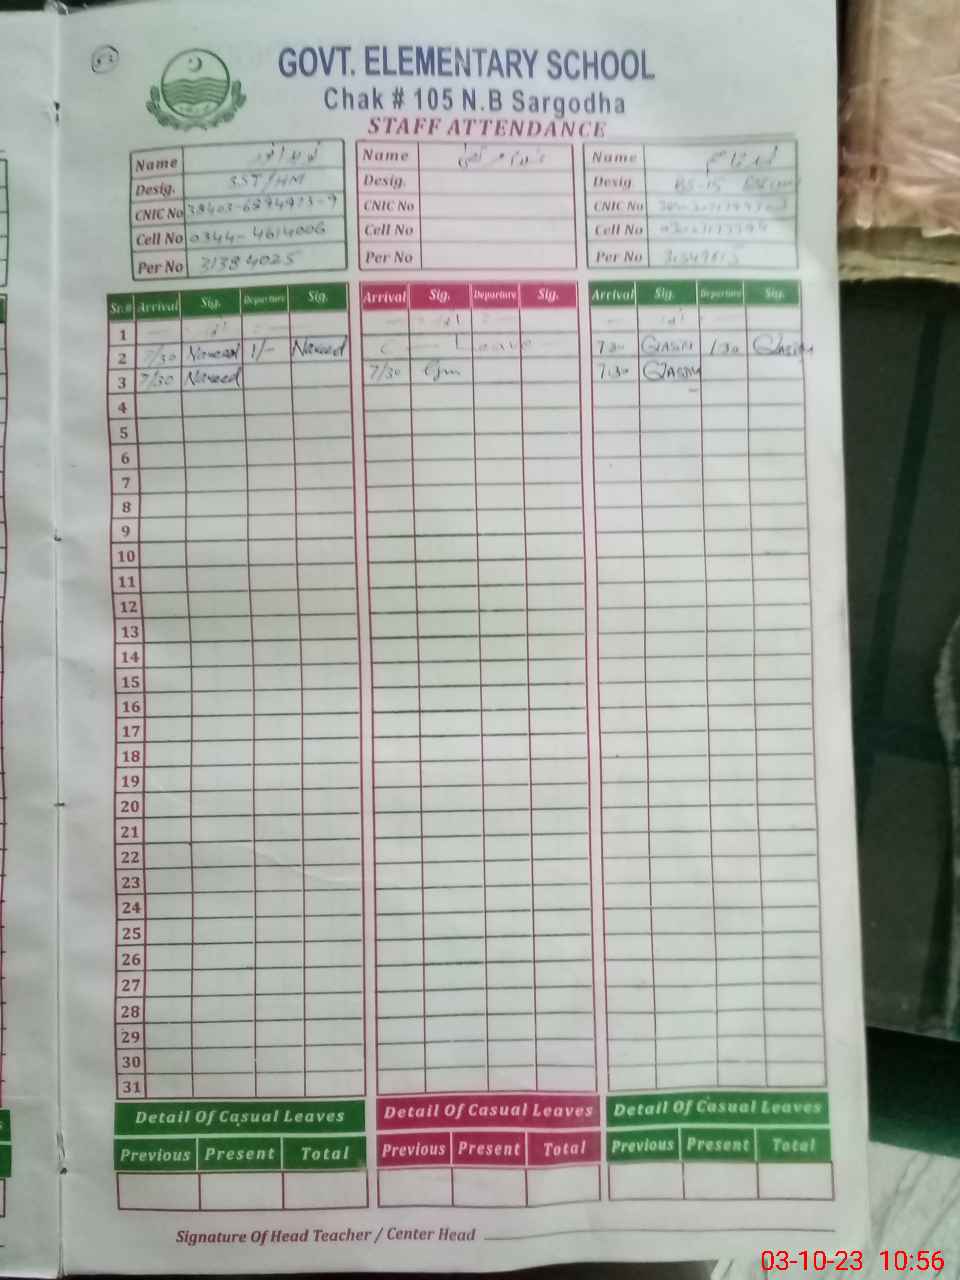 GOVT. ELEMENTARY SCHOOL
Chak # 105 N.B Sargodha
STAFF ATTENDANCE
Name نوید انور Name Name
Desig. SST/HM Desig. Desig BS-15
CNIC No CNIC No CNIC No
Cell No 0344-4614006 Cell No Cell No
Per No 31384025 Per No Per No
Sr.# Arrival Sig. Departure Sig. Arrival Sig. Departure Sig. Arrival Sig. Departure Sig.
1 اتوار اتوار اتوار
2 7/30 Naveed 1/- Naveed C Leave 7 30 QASIM 1/30 QASIM
3 7/30 Naveed 7/30 7:30 QASIM
4
5
6
7
8
9
10
11
12
13
14
15
16
17
18
19
20
21
22
23
24
25
26
27
28
29
30
31
Detail Of Casual Leaves Detail Of Casual Leaves Detail Of Casual Leaves
Previous Present Total Previous Present Total Previous Present Total
Signature Of Head Teacher / Center Head
03-10-23 10:56